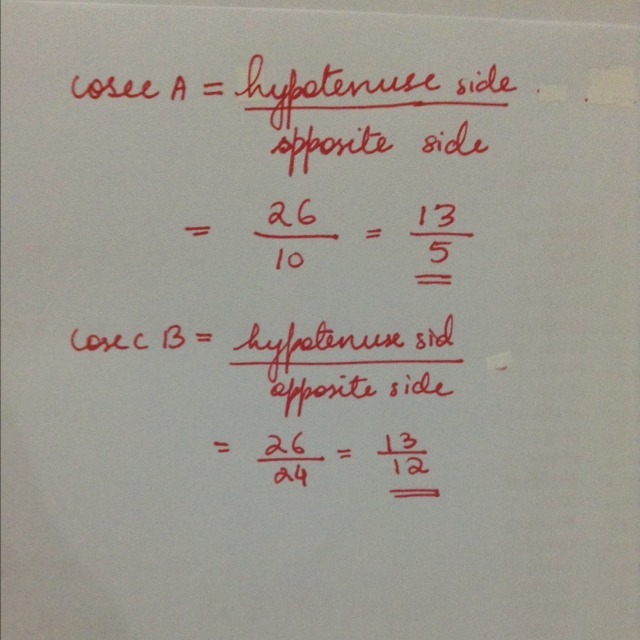 cosec A = hypotenuse side
opposite side
= 26/10 = 13/5
cosec B = hypotenuse sid
opposite side
= 26/24 = 13/12